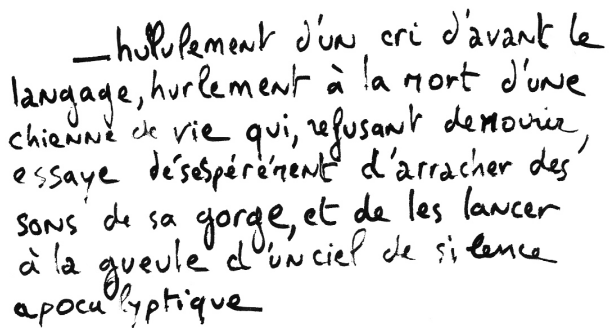 — hululement d'un cri d'avant le
langage, hurlement à la mort d'une
chienne de vie qui, refusant de mourir,
essaye désespérément d'arracher des
sons de sa gorge, et de les lancer
à la gueule d'un ciel de silence
apocalyptique